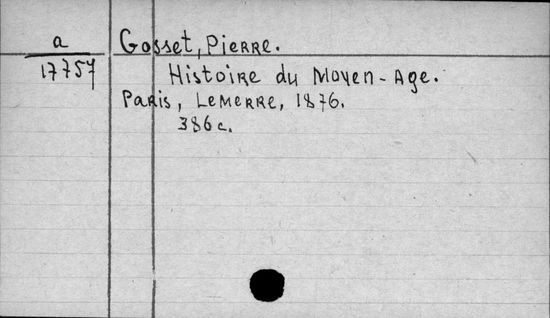 a
17757
Gosset, Pierre.
Histoire du Moyen-Age.
Paris, Lemerre, 1876.
386 c.